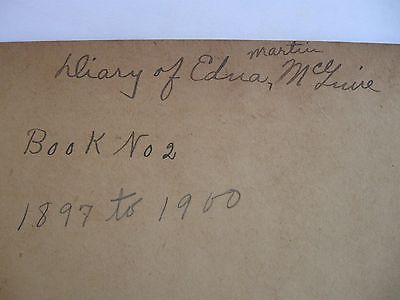 martin
Diary of Edna, McGuire
Book No 2
1897 to 1900